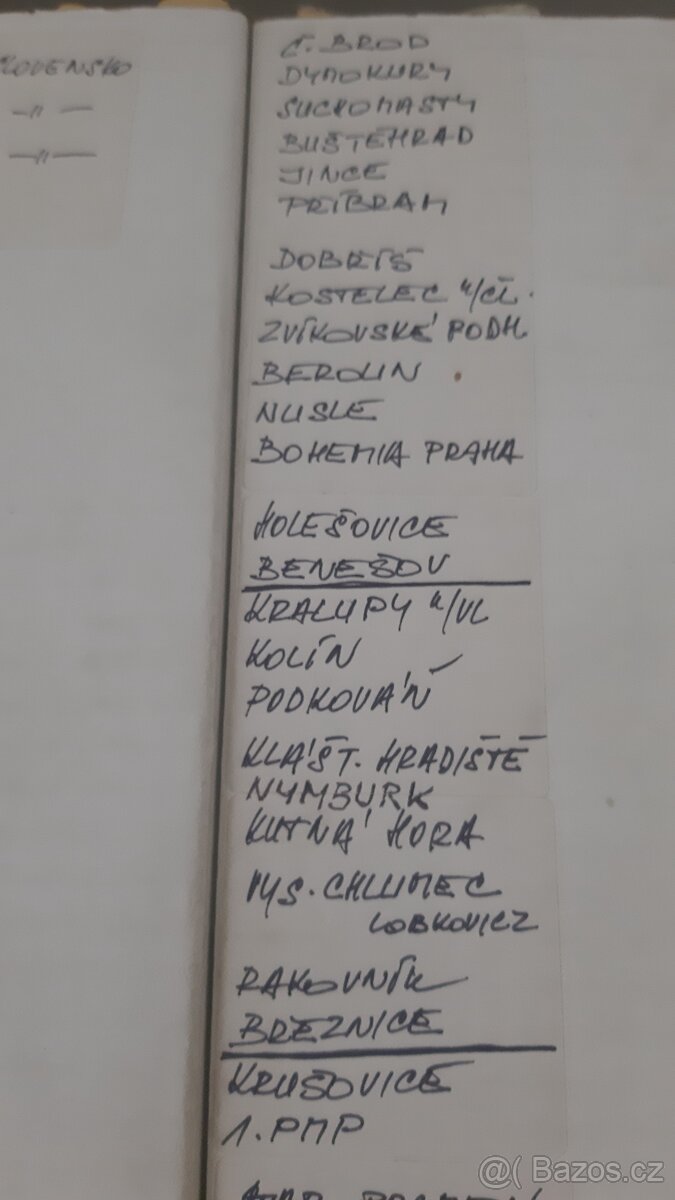 SLOVENSKO
-〃-
-〃-
Č. BROD
DYMOKURY
SUCHOMASTY
BUŠTĚHRAD
JINCE
PŘÍBRAM
DOBŘÍŠ
KOSTELEC N/ČL.
ZVÍKOVSKÉ PODH.
BEROUN
NUSLE
BOHEMIA PRAHA
HOLEŠOVICE
BENEŠOV
KRALUPY N/VL
KOLÍN
PODKOVÁŇ
KLÁŠT. HRADIŠTĚ
NYMBURK
KUTNÁ HORA
VYS. CHLUMEC
LOBKOVICZ
RAKOVNÍK
BŘEZNICE
KRUŠOVICE
1. PMP
@( Bazos.cz